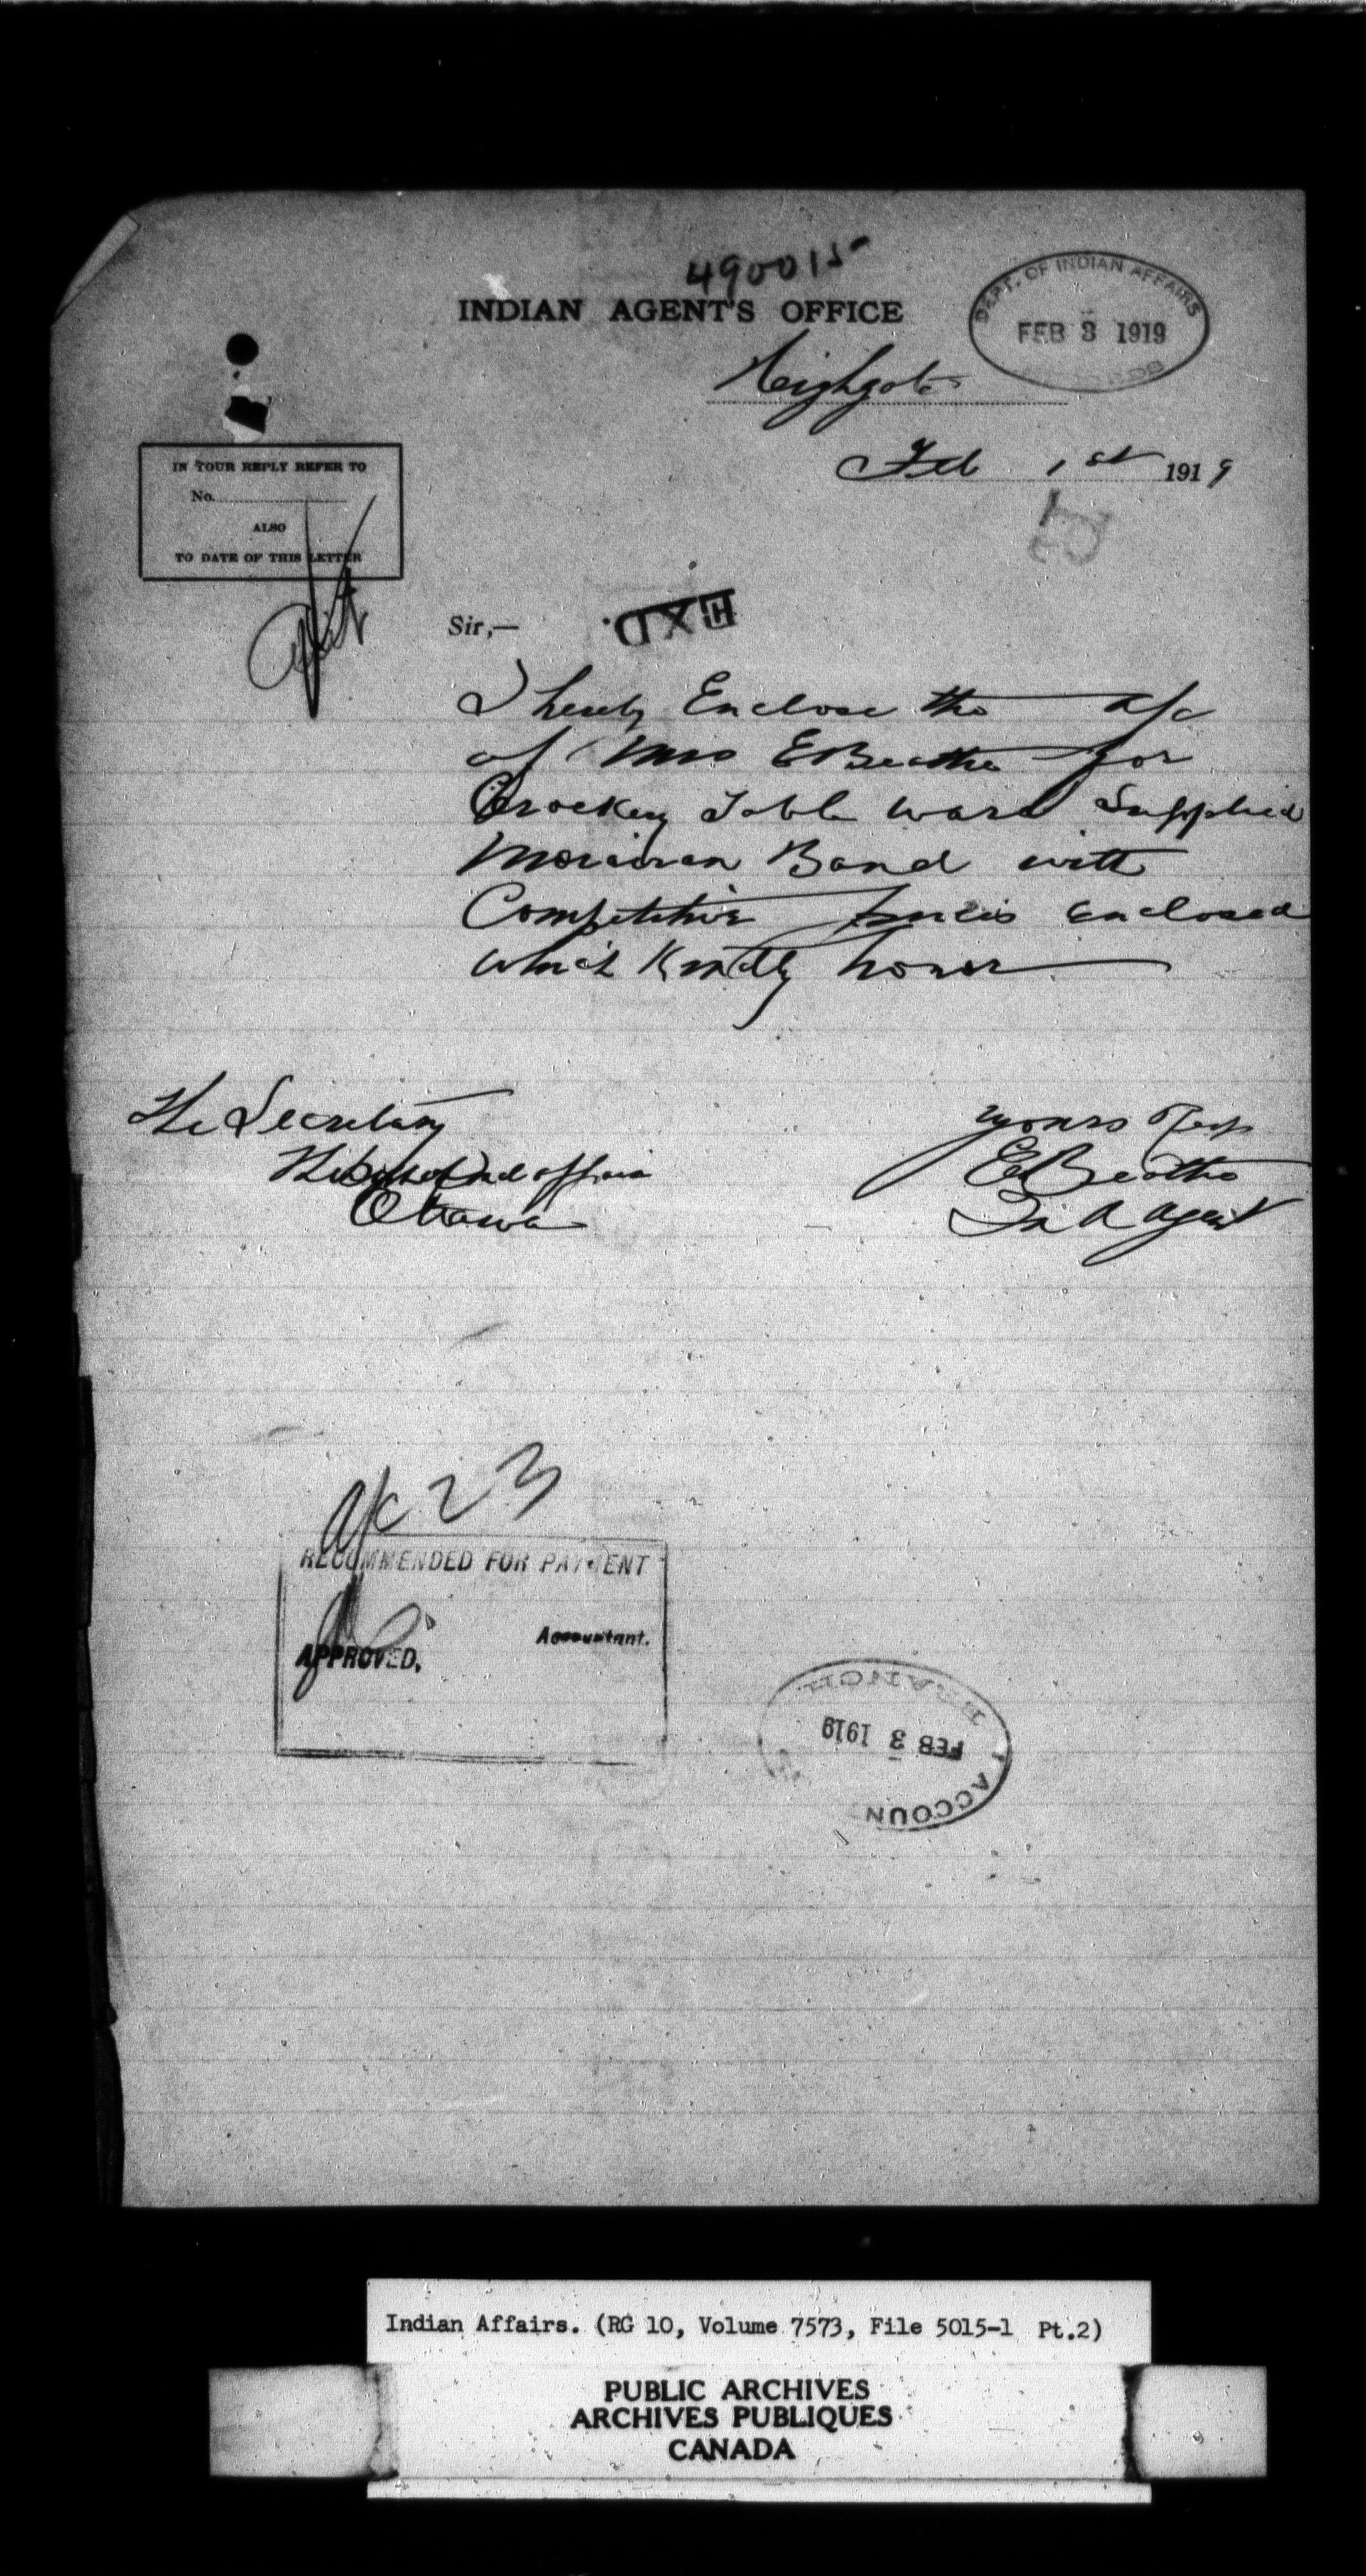 490015
INDIAN AGENT'S OFFICE
DEPT. OF INDIAN AFFAIRS
FEB 3 1919
Highgate
Feb 1st 1919
IN YOUR REPLY REFER TO
No.
ALSO
TO DATE OF THIS LETTER
Sir,—
HXD.
I hereby Enclose the a/c
of Mrs E Beattie for
Crockery Table ware Supplied
Moravian Band with
Competitive prices enclosed
which Kindly honor
The Secretary
The Dept of Ind affairs
Ottawa
yours Resp
E Beattie
Ind Agent
a/c 23
RECOMMENDED FOR PAYMENT
Accountant.
APPROVED,
BRANCH
FEB 3 1919
ACCOUNT
Indian Affairs. (RG 10, Volume 7573, File 5015-1 Pt.2)
PUBLIC ARCHIVES
ARCHIVES PUBLIQUES
CANADA